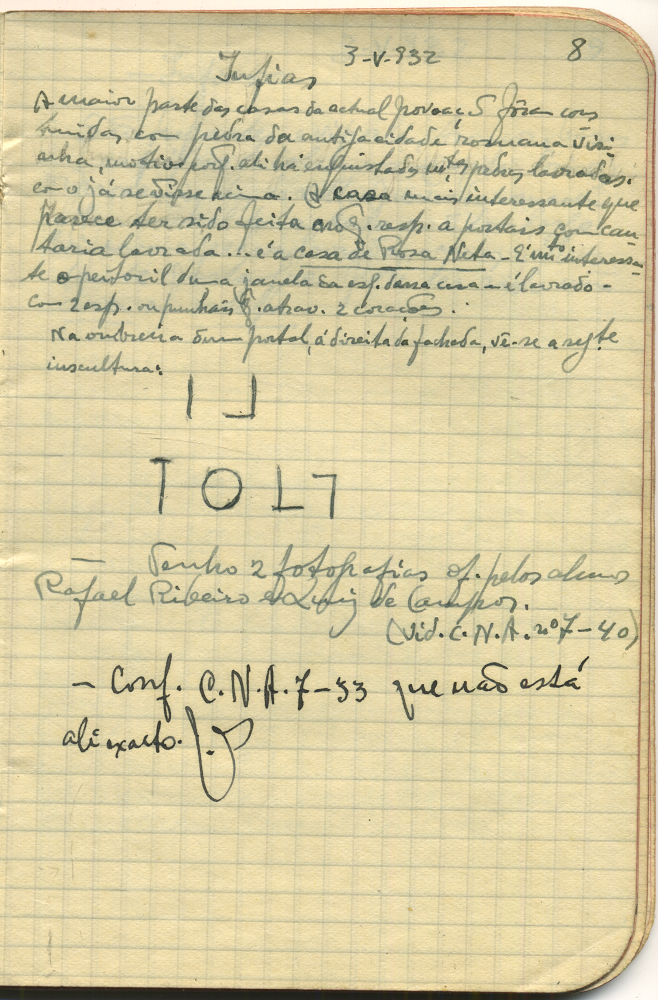 3-V-932 8
Infias
A maior parte das casas da actual povoaç. fôram cons
truidas com pedra da antiga cidade romana visi
nha, motivo porq. ali há enquistadas mtas pedras lavradas.
como já se disse acima. A casa mais interessante que
parece ter sido feita resp. a portais com can
taria lavrada... é a casa de Rosa Neta - É mto interessan
te o peitoril duma janela da esq. dessa casa - é lavrado -
com 2 esp. ou punhais q. atrav. 2 corações.
Na ombreira dum portal, á direita da fachada, vê-se a segte
inscultura:
I ⅃
T O L ㄱ
— Tenho 2 fotografias of. pelos alunos
Rafael Ribeiro e Luiz de Campos.
(Vid. C.N.A. nº 7-40)
- Conf. C.N.A. 7-33 que não está
ali exacto.